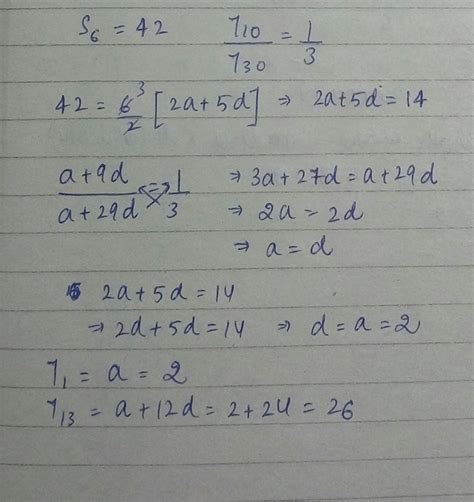 S₆ = 42    T₁₀/T₃₀ = 1/3
42 = 6̸³/2̸ [2a+5d] ⇒ 2a+5d = 14
(a+9d)/(a+29d) = 1/3 ⇒ 3a+27d = a+29d
⇒ 2a = 2d
⇒ a = d
2a+5d = 14
⇒ 2d+5d = 14 ⇒ d = a = 2
T₁ = a = 2
T₁₃ = a+12d = 2+24 = 26